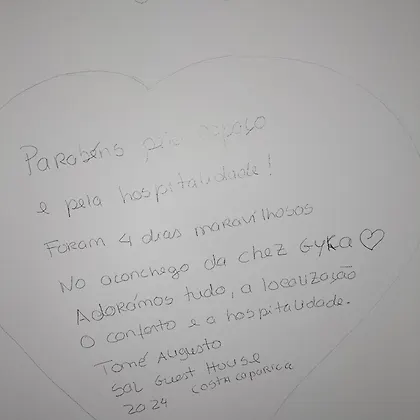 Parabéns pelo espaço
e pela hospitalidade!
Foram 4 dias maravilhosos
No aconchego da chez Gyka ♡
Adorámos tudo, a localização
O conforto e a hospitalidade.
Tomé Augusto
Sal Guest House
2024 Costa Caparica